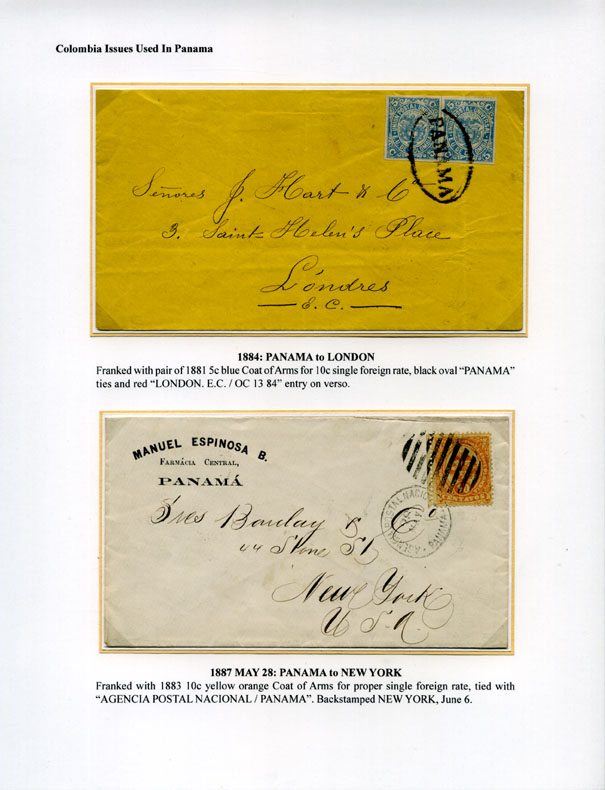 Colombia Issues Used In Panama
PANAMA
Señores J. Hart & Cº
3. Saint=Helen's Place
Londres
E.C.
1884: PANAMA to LONDON
Franked with pair of 1881 5c blue Coat of Arms for 10c single foreign rate, black oval “PANAMA”
ties and red “LONDON. E.C. / OC 13 84” entry on verso.
MANUEL ESPINOSA B.
FARMÁCIA CENTRAL,
PANAMÁ
AGENCIA POSTAL NACIONAL
PANAMA
Sres Barclay & Co
44 Stone St
New York
U.S.A.
1887 MAY 28: PANAMA to NEW YORK
Franked with 1883 10c yellow orange Coat of Arms for proper single foreign rate, tied with
“AGENCIA POSTAL NACIONAL / PANAMA”. Backstamped NEW YORK, June 6.